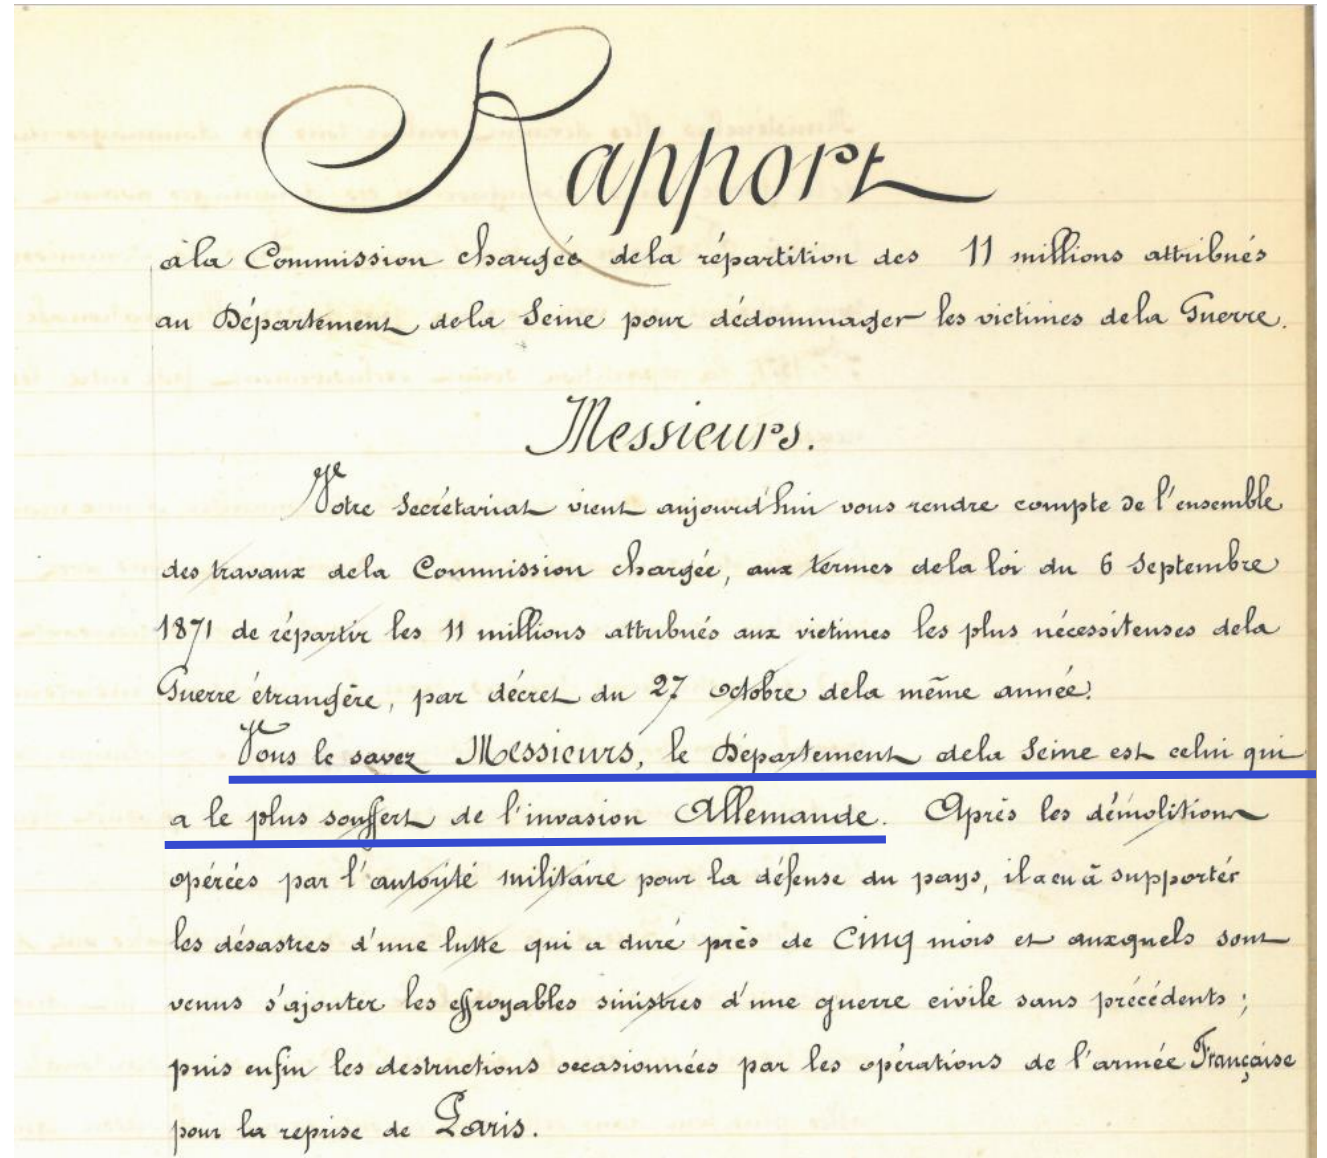 Rapport
à la Commission chargée de la répartition des 11 millions attribués
au Département de la Seine pour dédommager les victimes de la Guerre.
Messieurs.
Votre Secrétariat vient aujourd'hui vous rendre compte de l'ensemble
des travaux de la Commission chargée, aux termes de la loi du 6 Septembre
1871 de répartir les 11 millions attribués aux victimes les plus nécessiteuses de la
Guerre étrangère, par décret du 27 octobre de la même année.
Vous le savez Messieurs, le Département de la Seine est celui qui
a le plus souffert de l'invasion Allemande. Après les démolitions
opérées par l'autorité militaire pour la défense du pays, il a eu à supporter
les désastres d'une lutte qui a duré près de Cinq mois et auxquels sont
venus s'ajouter les effroyables sinistres d'une guerre civile sans précédents ;
puis enfin les destructions occasionnées par les opérations de l'armée Française
pour la reprise de Paris.